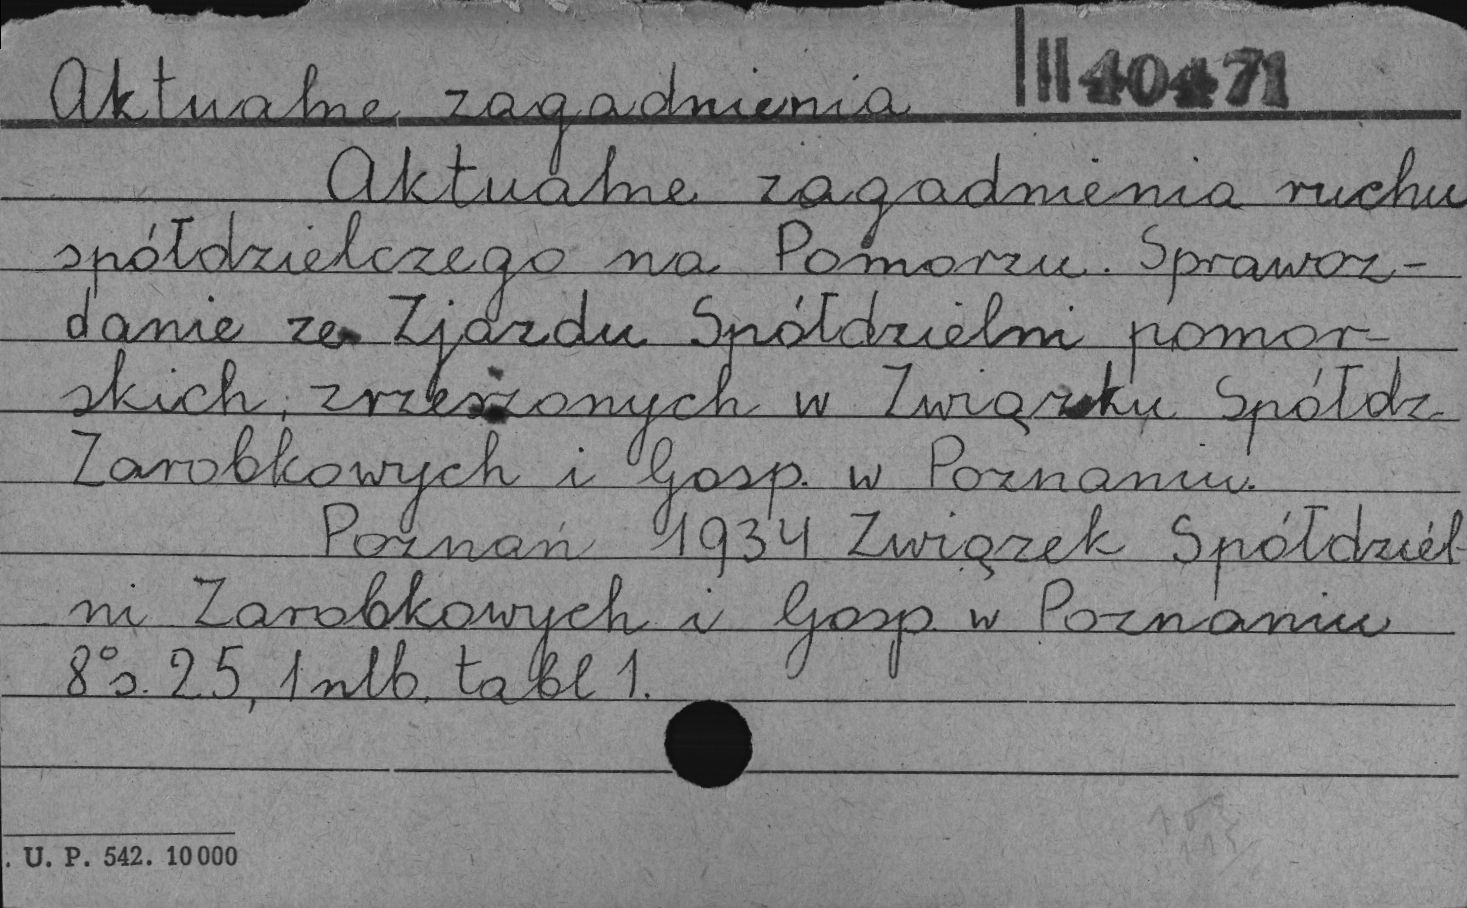 Aktualne zagadnienia III 40471
Aktualne zagadnienia ruchu
spółdzielczego na Pomorzu. Sprawoz-
danie ze Zjazdu Spółdzielni pomor-
skich, zrzeszonych w Związku Spółdz.
Zarobkowych i Gosp. w Poznaniu.
Poznań 1934 Związek Spółdziel-
ni Zarobkowych i Gosp. w Poznaniu
8° s. 25, 1 nlb, tabl 1.
. U. P. 542. 10 000